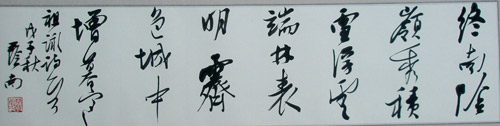 終南陰
嶺秀積
雪浮雲
端林表
明霽
色城中
增暮寒
祖詠詩
戊子秋
南